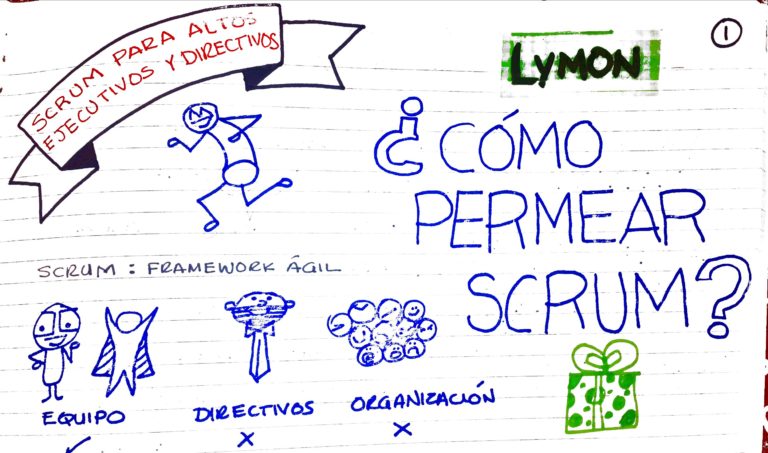 SCRUM PARA ALTOS
EJECUTIVOS Y DIRECTIVOS
LYMON
1
¿CÓMO
PERMEAR
SCRUM?
SCRUM : FRAMEWORK ÁGIL
EQUIPO
DIRECTIVOS
ORGANIZACIÓN
✓
X
X